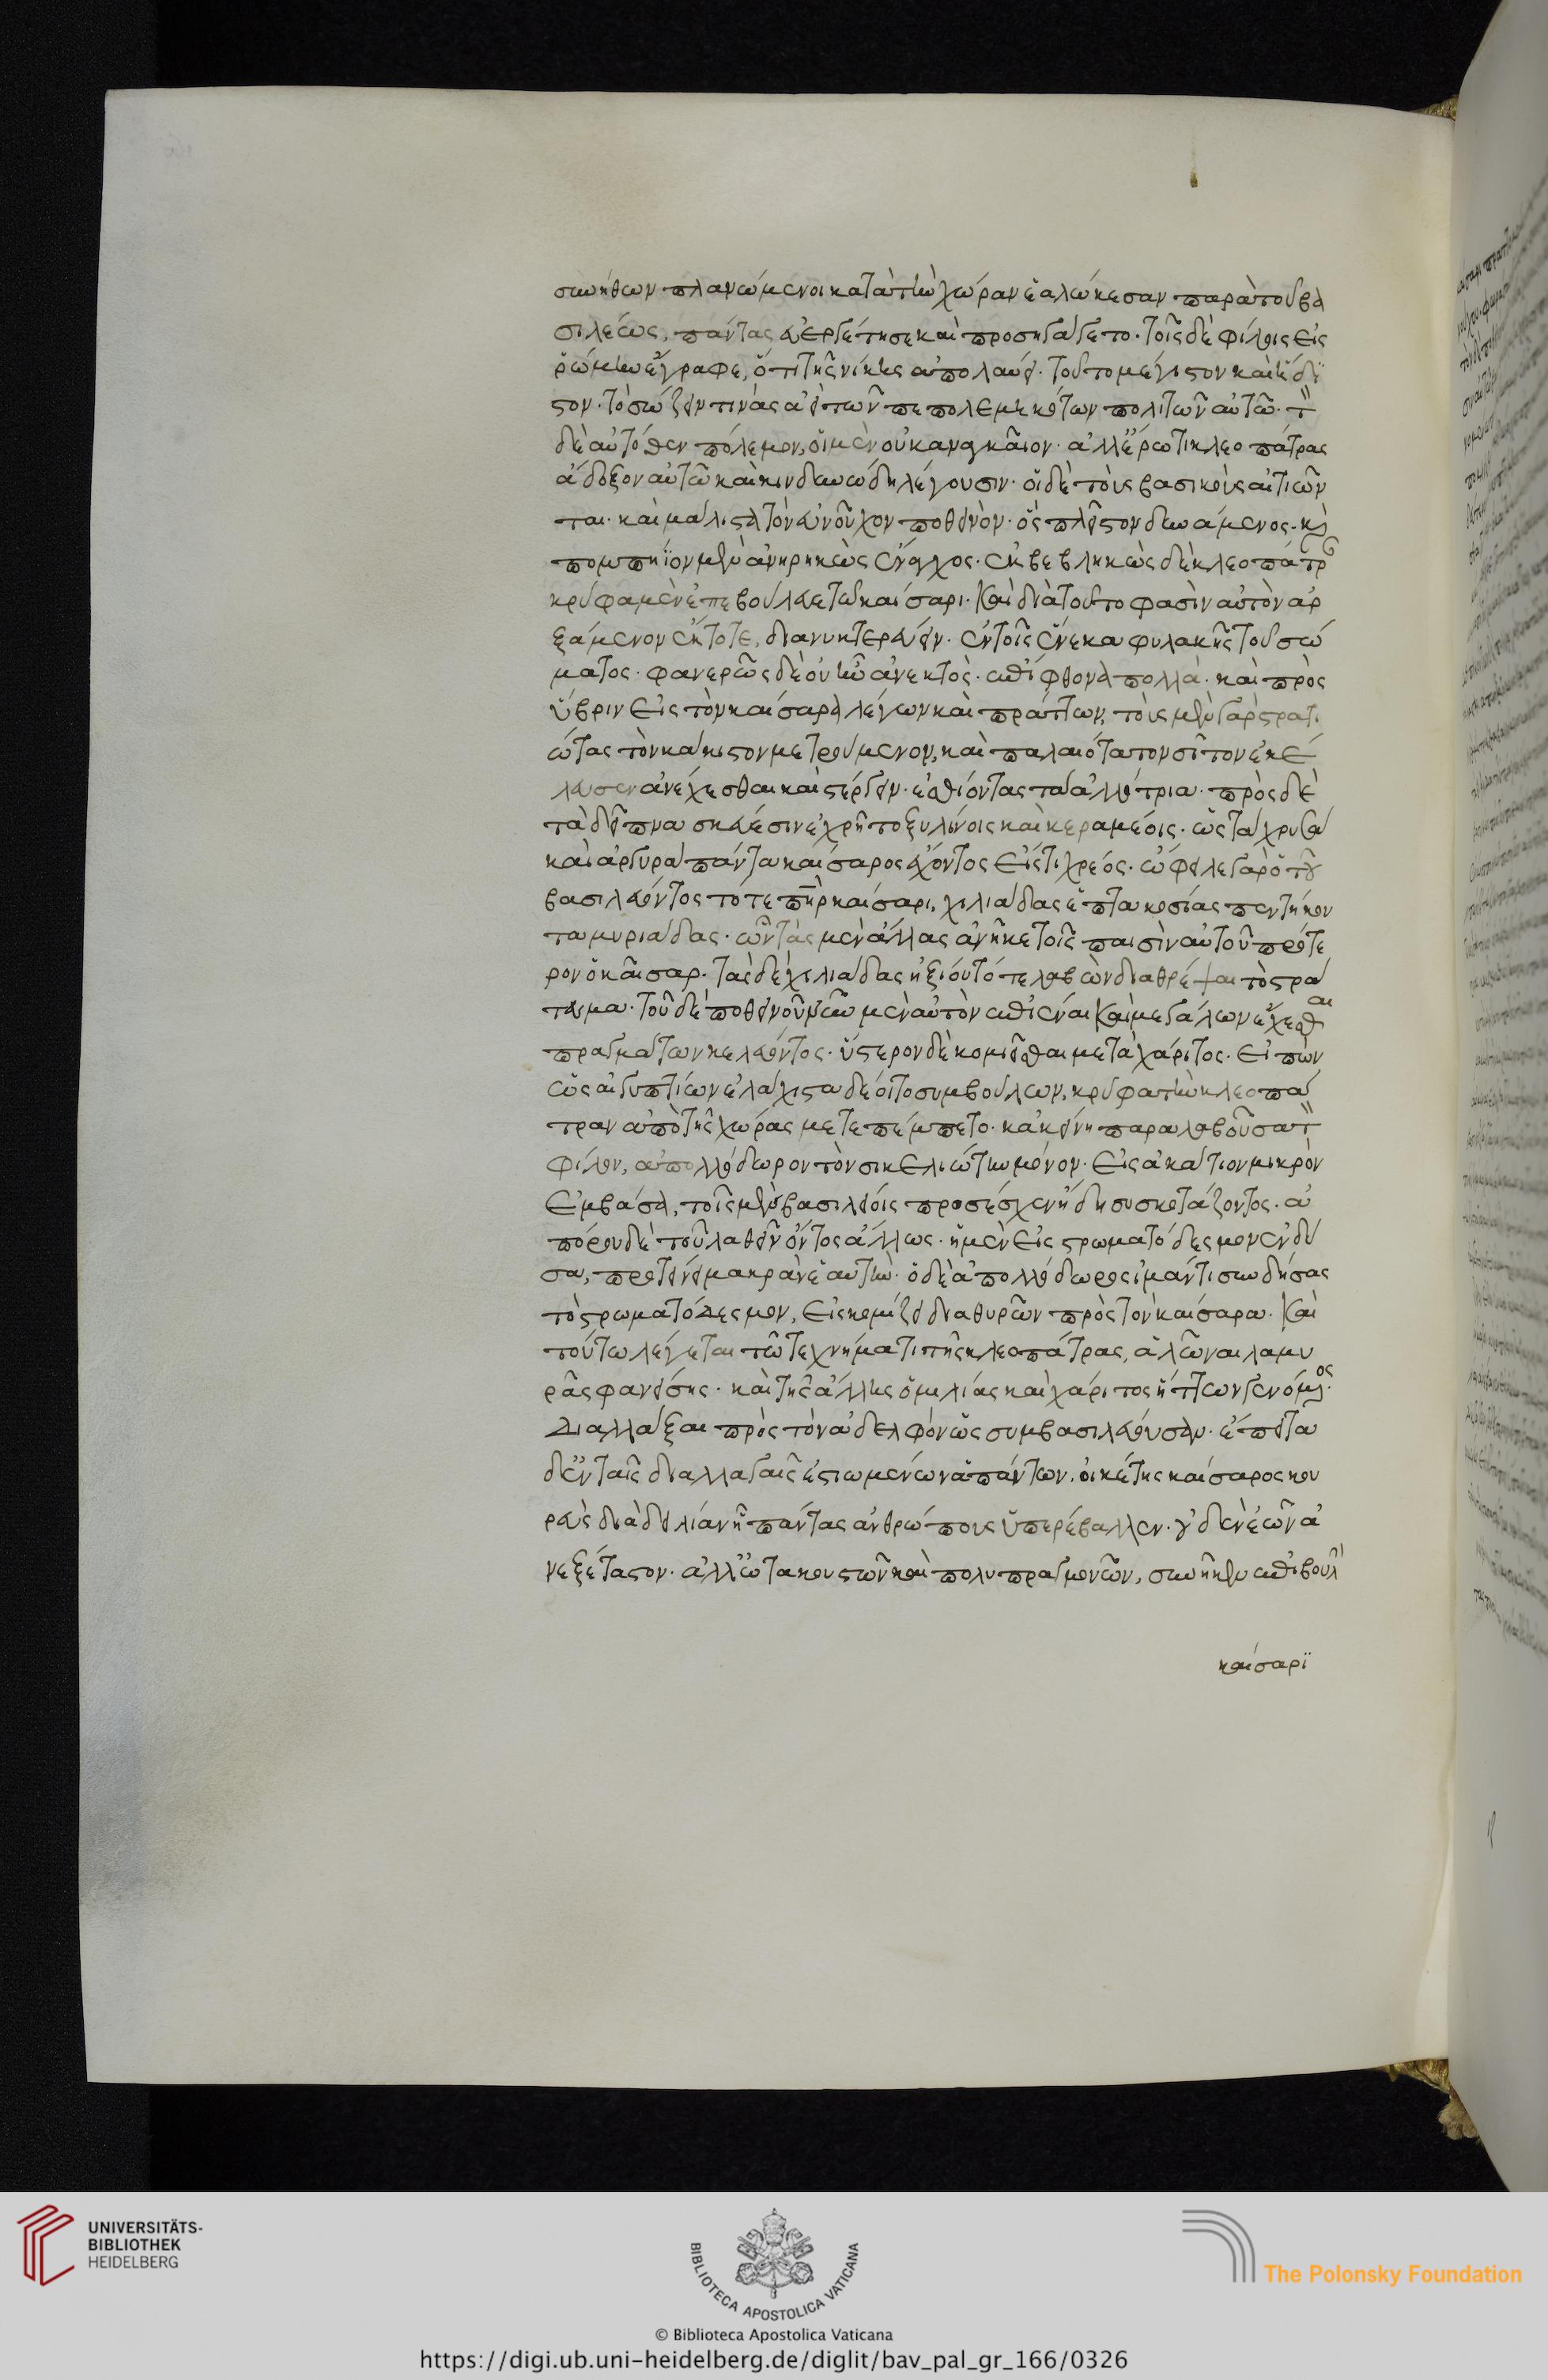 συνήθων πλανώμενοι κατὰ τὴν χώραν ἑαλώκεσαν παρὰ τοῦ βα
σιλέως, πάντας εὐεργέτησε καὶ προσηγάγετο. τοῖς δὲ φίλοις εἰς
ῥώμην ἔγραφε, ὅτι τῆς νίκης ἀπολαύει τοῦτο μέγιστον καὶ ἥδι
στον. τὸ σώζειν τινὰς ἀεὶ τῶν πεπολεμηκότων πολιτῶν αὐτῶ. τὸν
δὲ αὐτόθεν πόλεμον, οἱ μὲν οὐκ ἀναγκαῖον. ἀλλ' ἔρωτι κλεοπάτρας
ἄδοξον αὐτῶ καὶ κινδυνώδη λέγουσιν. οἱ δὲ τοὺς βασιλικοὺς αἰτιῶν
ται. καὶ μάλιστα τὸν εὐνοῦχον ποθεινόν. ὃς πλεῖστον δυνάμενος. καὶ
πομπήϊον μὲν ἀνηρηκὼς ἔναγχος. ἐκβεβληκὼς δὲ κλεοπάτραν
κρύφα μὲν ἐπεβούλευε τῶ καίσαρι. καὶ διὰ τοῦτο φασὶν αὐτὸν ἀρ
ξάμενον ἔκτοτε, διανυκτερεύειν. ἐν τοῖς ἕνεκα φυλακῆς τοῦ σώ
ματος. φανερῶς δὲ οὐκ ἦν ἀνεκτὸς. ἐπίφθονα πολλὰ. καὶ πρὸς
ὕβριν εἰς τὸν καίσαρα λέγων καὶ πράττων, τοὺς μὲν γὰρ στρατι
ώτας τὸν κάκιστον μετρούμενον, καὶ παλαιότατον σῖτον ἐκέ
λευσεν ἀνέχεσθαι καὶ στέργειν. ἐσθίοντας τὰ ἀλλότρια. πρὸς δὲ
τὰ δεῖπνα σκεύεσιν ἐχρῆτο ξυλίνοις καὶ κεραμέοις. ὡς τὰ χρυσᾶ
καὶ ἀργυρᾶ πάντα καίσαρος ἔχοντος εἴς τι χρέος. ὤφειλε γὰρ ὁ τοῦ
βασιλεύοντος τότε πατὴρ καίσαρι, χιλιάδας ἑπτακοσίας πεντήκον
τα μυριάδας. ὧν τὰς μὲν ἄλλας ἀνῆκε τοῖς παισὶν αὐτοῦ πρότε
ρον ὁ καῖσαρ. τὰς δὲ χιλιάδας ἠξίου τότε λαβὼν διαθρέψαι τὸ στρά
τευμα. τοῦ δὲ ποθεινοῦ νῦν μὲν αὐτὸν ἀπιέναι καὶ μεγάλων ἔχεσθαι
πραγμάτων κελεύοντος. ὕστερον δὲ κομιεῖσθαι μετὰ χάριτος. εἰπὼν
ὡς αἰγυπτίων ἐλάχιστα δέοιτο συμβούλων, κρύφα τὴν κλεοπά
τραν ἀπὸ τῆς χώρας μετεπέμπετο. κἀκείνη παραλαβοῦσα τῶν
φίλων, ἀπολλόδωρον τὸν σικελιώτην μόνον. εἰς ἀκάτιον μικρὸν
ἐμβᾶσα, τοῖς μὲν βασιλείοις προσέσχεν ἤδη συσκοτάζοντος. ἀ
πόρου δὲ τοῦ λαθεῖν ὄντος ἄλλως. ἡ μὲν εἰς στρωματόδεσμον ἐνδῦ
σα, προτείνει μακρὰν ἑαυτὴν. ὁ δὲ ἀπολλόδωρος ἱμάντι συνδήσας
τὸ στρωματόδεσμον, εἰσκομίζει διὰ θυρῶν πρὸς τὸν καίσαρα. καὶ
τούτω λέγεται τῶ τεχνήματι τῆς κλεοπάτρας, ἁλῶναι λαμυ
ρᾶς φανείσης. καὶ τῆς ἄλλης ὁμιλίας καὶ χάριτος ἥττων γενόμενος.
διαλλάξαι πρὸς τὸν ἀδελφὸν ὡς συμβασιλεύουσαν. ἔπειτα
δ' ἐν ταῖς διαλλαγαῖς ἑστιωμένων ἁπάντων, οἰκέτης καίσαρος κου
ρεὺς διὰ δειλίαν ἧ πάντας ἀνθρώπους ὑπερέβαλλεν. οὐδὲν ἐῶν ἀ
νεξέταστον. ἀλλ' ὠτακουστῶν καὶ πολυπραγμονῶν, συνῆκεν ἐπιβουλὴν
καίσαρϊ
UNIVERSITÄTS-
BIBLIOTHEK
HEIDELBERG
BIBLIOTECA APOSTOLICA VATICANA
The Polonsky Foundation
© Biblioteca Apostolica Vaticana
https://digi.ub.uni-heidelberg.de/diglit/bav_pal_gr_166/0326